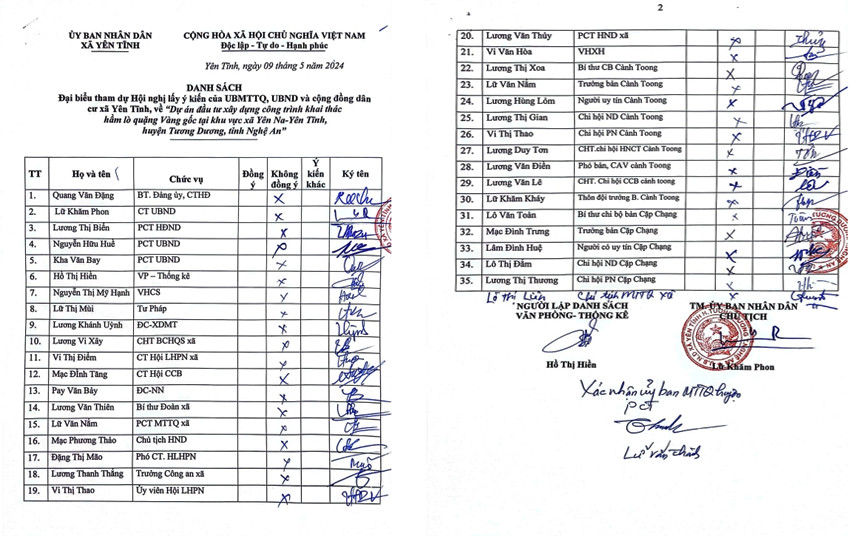 ỦY BAN NHÂN DÂN
XÃ YÊN TĨNH
CỘNG HÒA XÃ HỘI CHỦ NGHĨA VIỆT NAM
Độc lập - Tự do - Hạnh phúc
Yên Tĩnh, ngày 09 tháng 5 năm 2024
DANH SÁCH
Đại biểu tham dự Hội nghị lấy ý kiến của UBMTTQ, UBND và cộng đồng dân
cư xã Yên Tĩnh, về “Dự án đầu tư xây dựng công trình khai thác
hầm lò quặng Vàng gốc tại khu vực xã Yên Na-Yên Tĩnh,
huyện Tương Dương, tỉnh Nghệ An”
TT Họ và tên Chức vụ Đồng ý Không đồng ý Ý kiến khác Ký tên
1. Quang Văn Đặng BT. Đảng ủy, CTHĐ X
2. Lữ Khăm Phon CT UBND X
3. Lương Thị Biển PCT HĐND X
4. Nguyễn Hữu Huề PCT UBND X
5. Kha Văn Bay PCT UBND X
6. Hồ Thị Hiền VP – Thống kê X
7. Nguyễn Thị Mỹ Hạnh VHCS X
8. Lữ Thị Mùi Tư Pháp X
9. Lương Khánh Uỳnh ĐC-XDMT X
10. Lương Vi Xáy CHT BCHQS xã X
11. Vi Thị Điểm CT Hội LHPN xã X
12. Mạc Đình Tăng CT Hội CCB X
13. Pay Văn Bảy ĐC-NN X
14. Lương Văn Thiên Bí thư Đoàn xã X
15. Lữ Văn Nắm PCT MTTQ xã X
16. Mạc Phương Thảo Chủ tịch HND X
17. Đặng Thị Mão Phó CT. HLHPN X
18. Lương Thanh Thắng Trưởng Công an xã X
19. Vi Thị Thao Ủy viên Hội LHPN X
2
20. Lương Văn Thủy PCT HND xã X
21. Vi Văn Hòa VHXH X
22. Lương Thị Xoa Bí thư CB Cành Toong X
23. Lữ Văn Nắm Trưởng bản Cành Toong X
24. Lương Hùng Lôm Người uy tín Cành Toong X
25. Lương Thị Gian Chi hội ND Cành Toong X
26. Vi Thị Thao Chi hội PN Cành Toong X
27. Lương Duy Tơn CHT.chi hội HNCT Cành Toong X
28. Lương Văn Điển Phó bản, CAV cành Toong X
29. Lương Văn Lê CHT. Chi hội CCB cành toong X
30. Lữ Khăm Kháy Thôn đội trưởng B. Cành Toong X
31. Lô Văn Toàn Bí thư chi bộ bản Cặp Chạng X
32. Mạc Đình Trưng Trưởng bản Cặp Chạng X
33. Lâm Đình Huệ Người có uy tín Cặp Chạng X
34. Lô Thị Đầm Chi hội ND Cặp Chạng X
35. Lương Thị Thương Chi hội PN Cặp Chạng X
Lô Thị Liên Chủ tịch MTTQ xã X
NGƯỜI LẬP DANH SÁCH
VĂN PHÒNG- THỐNG KÊ
Hồ Thị Hiền
TM. ỦY BAN NHÂN DÂN
CHỦ TỊCH
Lữ Khăm Phon
Xác nhận ủy ban MTTQ huyện
PCT
Lữ Văn